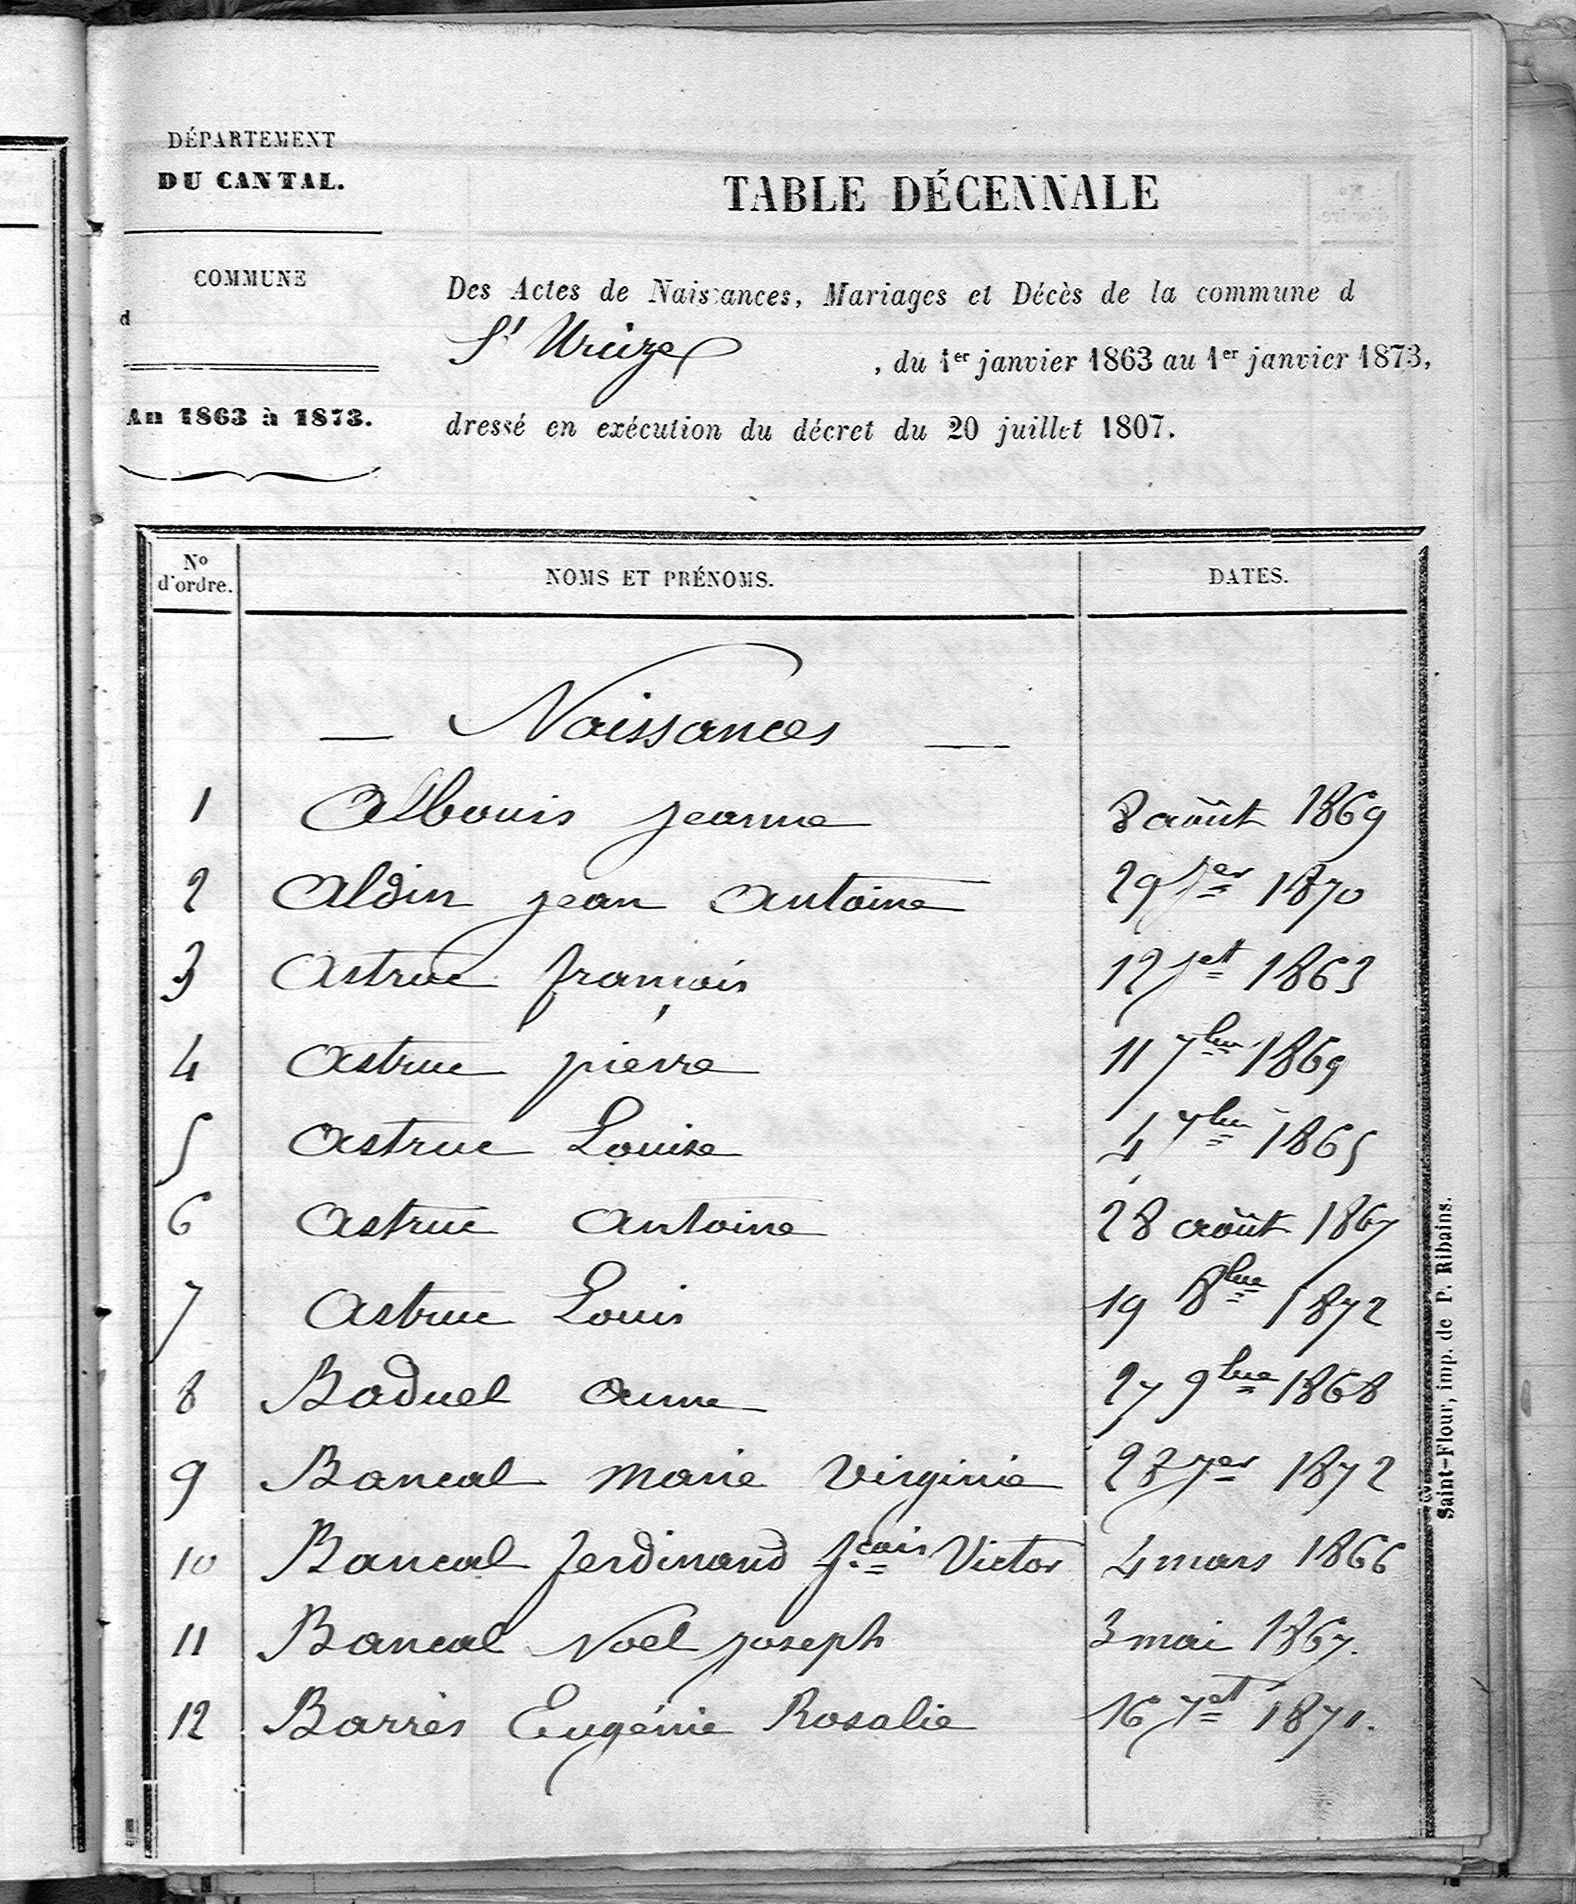 DÉPARTEMENT
DU CANTAL.
COMMUNE
d
An 1863 à 1873.
TABLE DÉCENNALE
Des Actes de Naissances, Mariages et Décès de la commune d
St Urcize, du 1er janvier 1863 au 1er janvier 1873,
dressé en exécution du décret du 20 juillet 1807.
No d'ordre. NOMS ET PRÉNOMS. DATES.
— Naissances —
1 Albouis jeanne 8 août 1869
2 Aldin jean Antoine 29 jer 1870
3 Astruc françois 12 jet 1863
4 Astruc pierre 11 7bre 1869
5 Astruc Louise 4 7bre 1865
6 Astruc Antoine 28 août 1867
7 Astruc Louis 19 8bre 1872
8 Baduel Anne 27 9bre 1868
9 Bancal Marie Virginie 23 jer 1872
10 Bancal ferdinand fcois Victor 4 mars 1866
11 Bancal Noel joseph 3 mai 1867.
12 Barrès Eugénie Rosalie 16 jet 1871.
Saint-Flour, imp. de P. Ribains.